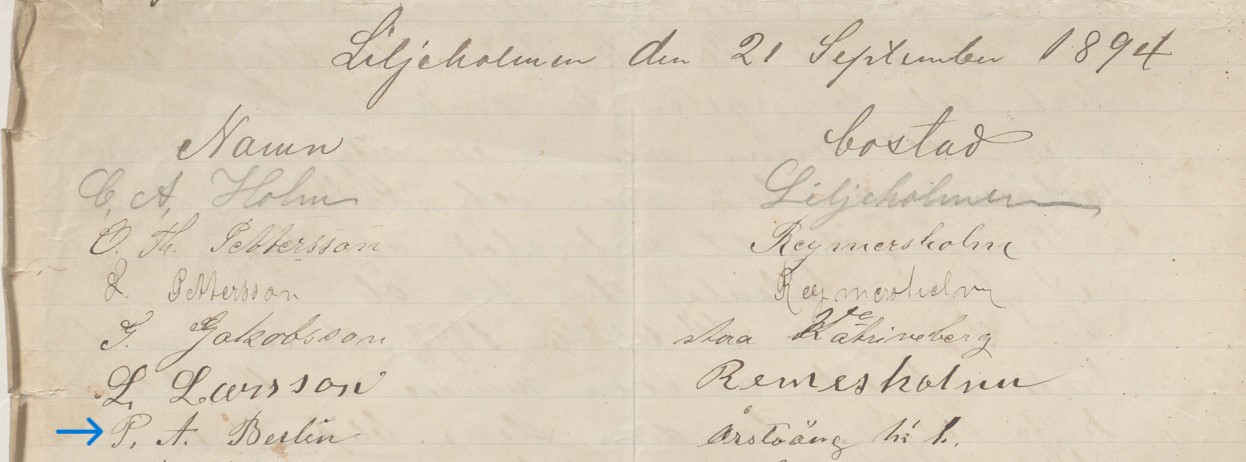 Liljeholmen den 21 September 1894
Namn bostad
C, A, Holm Liljeholmen
O. Th. Pettersson Reymersholm
L. Pettersson Reymersholm
G. Jakobsson stora Katrineberg
L, Larsson Remesholmn
P, A. Berlin Årstaäng 1.